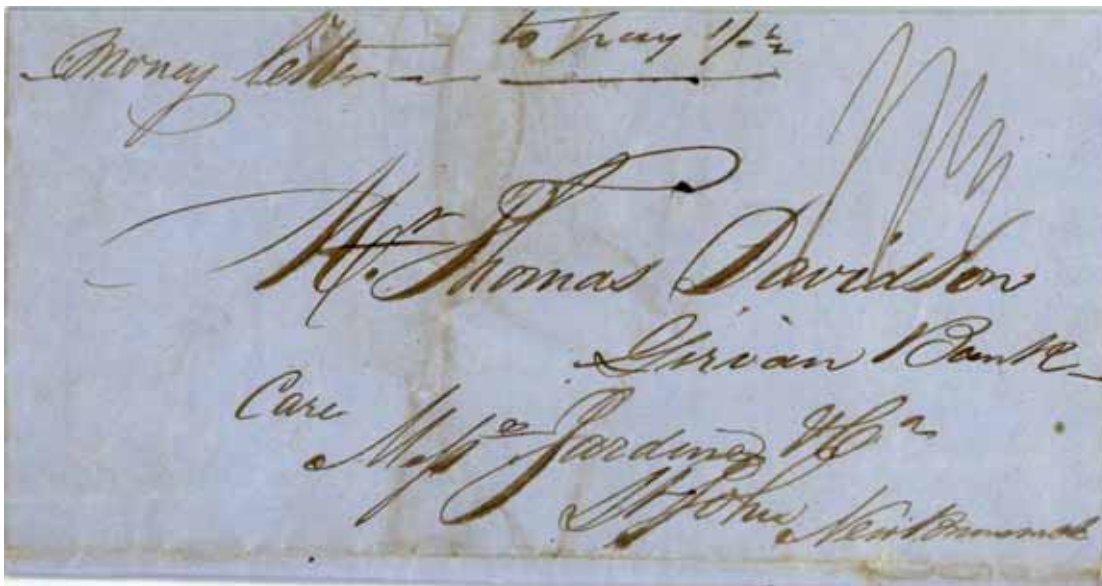 Money letter to pay 1/-
Mr. Thomas Davidson
Girvan Bank
Care
Messrs Jardine & Co
St John New Brunswick